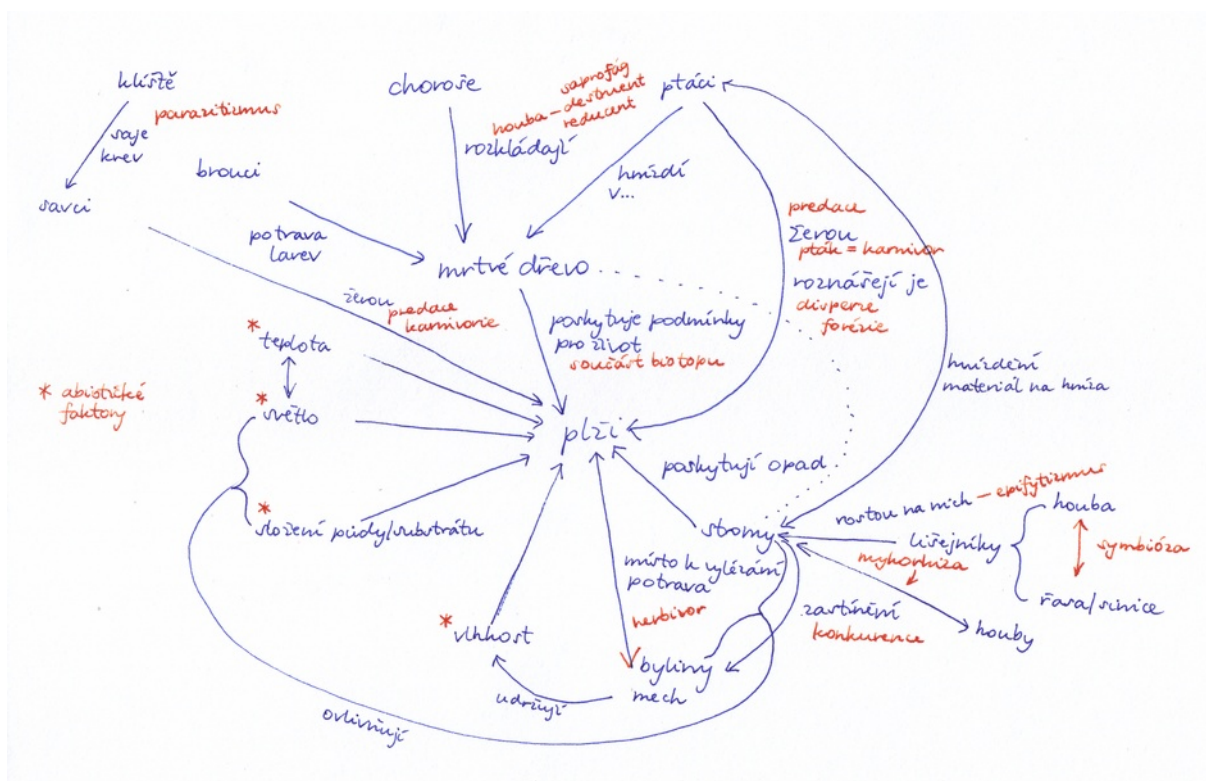 klíště
parazitizmus
saje
krev
savci
brouci
potrava
larev
choroše
saprofág
houba – destruent
reducent
rozkládají
ptáci
hnízdí
v...
predace
žerou
pták = karnivor
roznášejí je
disperze
forézie
mrtvé dřevo
žerou
predace
karnivorie
poskytuje podmínky
pro život
součást biotopu
hnízdění
materiál na hnízda
* teplota
* abiotické
faktory
* světlo
plži
poskytují opad
* složení půdy/substrátu
stromy
rostou na nich – epifytizmus
lišejníky
houba
symbióza
řasa/sinice
mykorhiza
houby
místo k vylézání
potrava
herbivor
zastínění
konkurence
* vlhkost
byliny
mech
udržují
ovlivňují